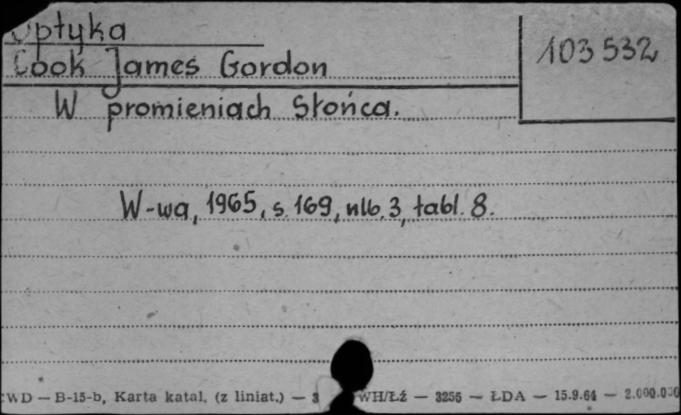 Optyka
103 532
Cook James Gordon
W promieniach Słońca.
W-wa, 1965, s. 169, nlb. 3, tabl. 8.
CWD — B-15-b, Karta katal. (z liniat.) — 3 WH/Łź — 3256 — ŁDA — 15.9.64 — 2.000.000